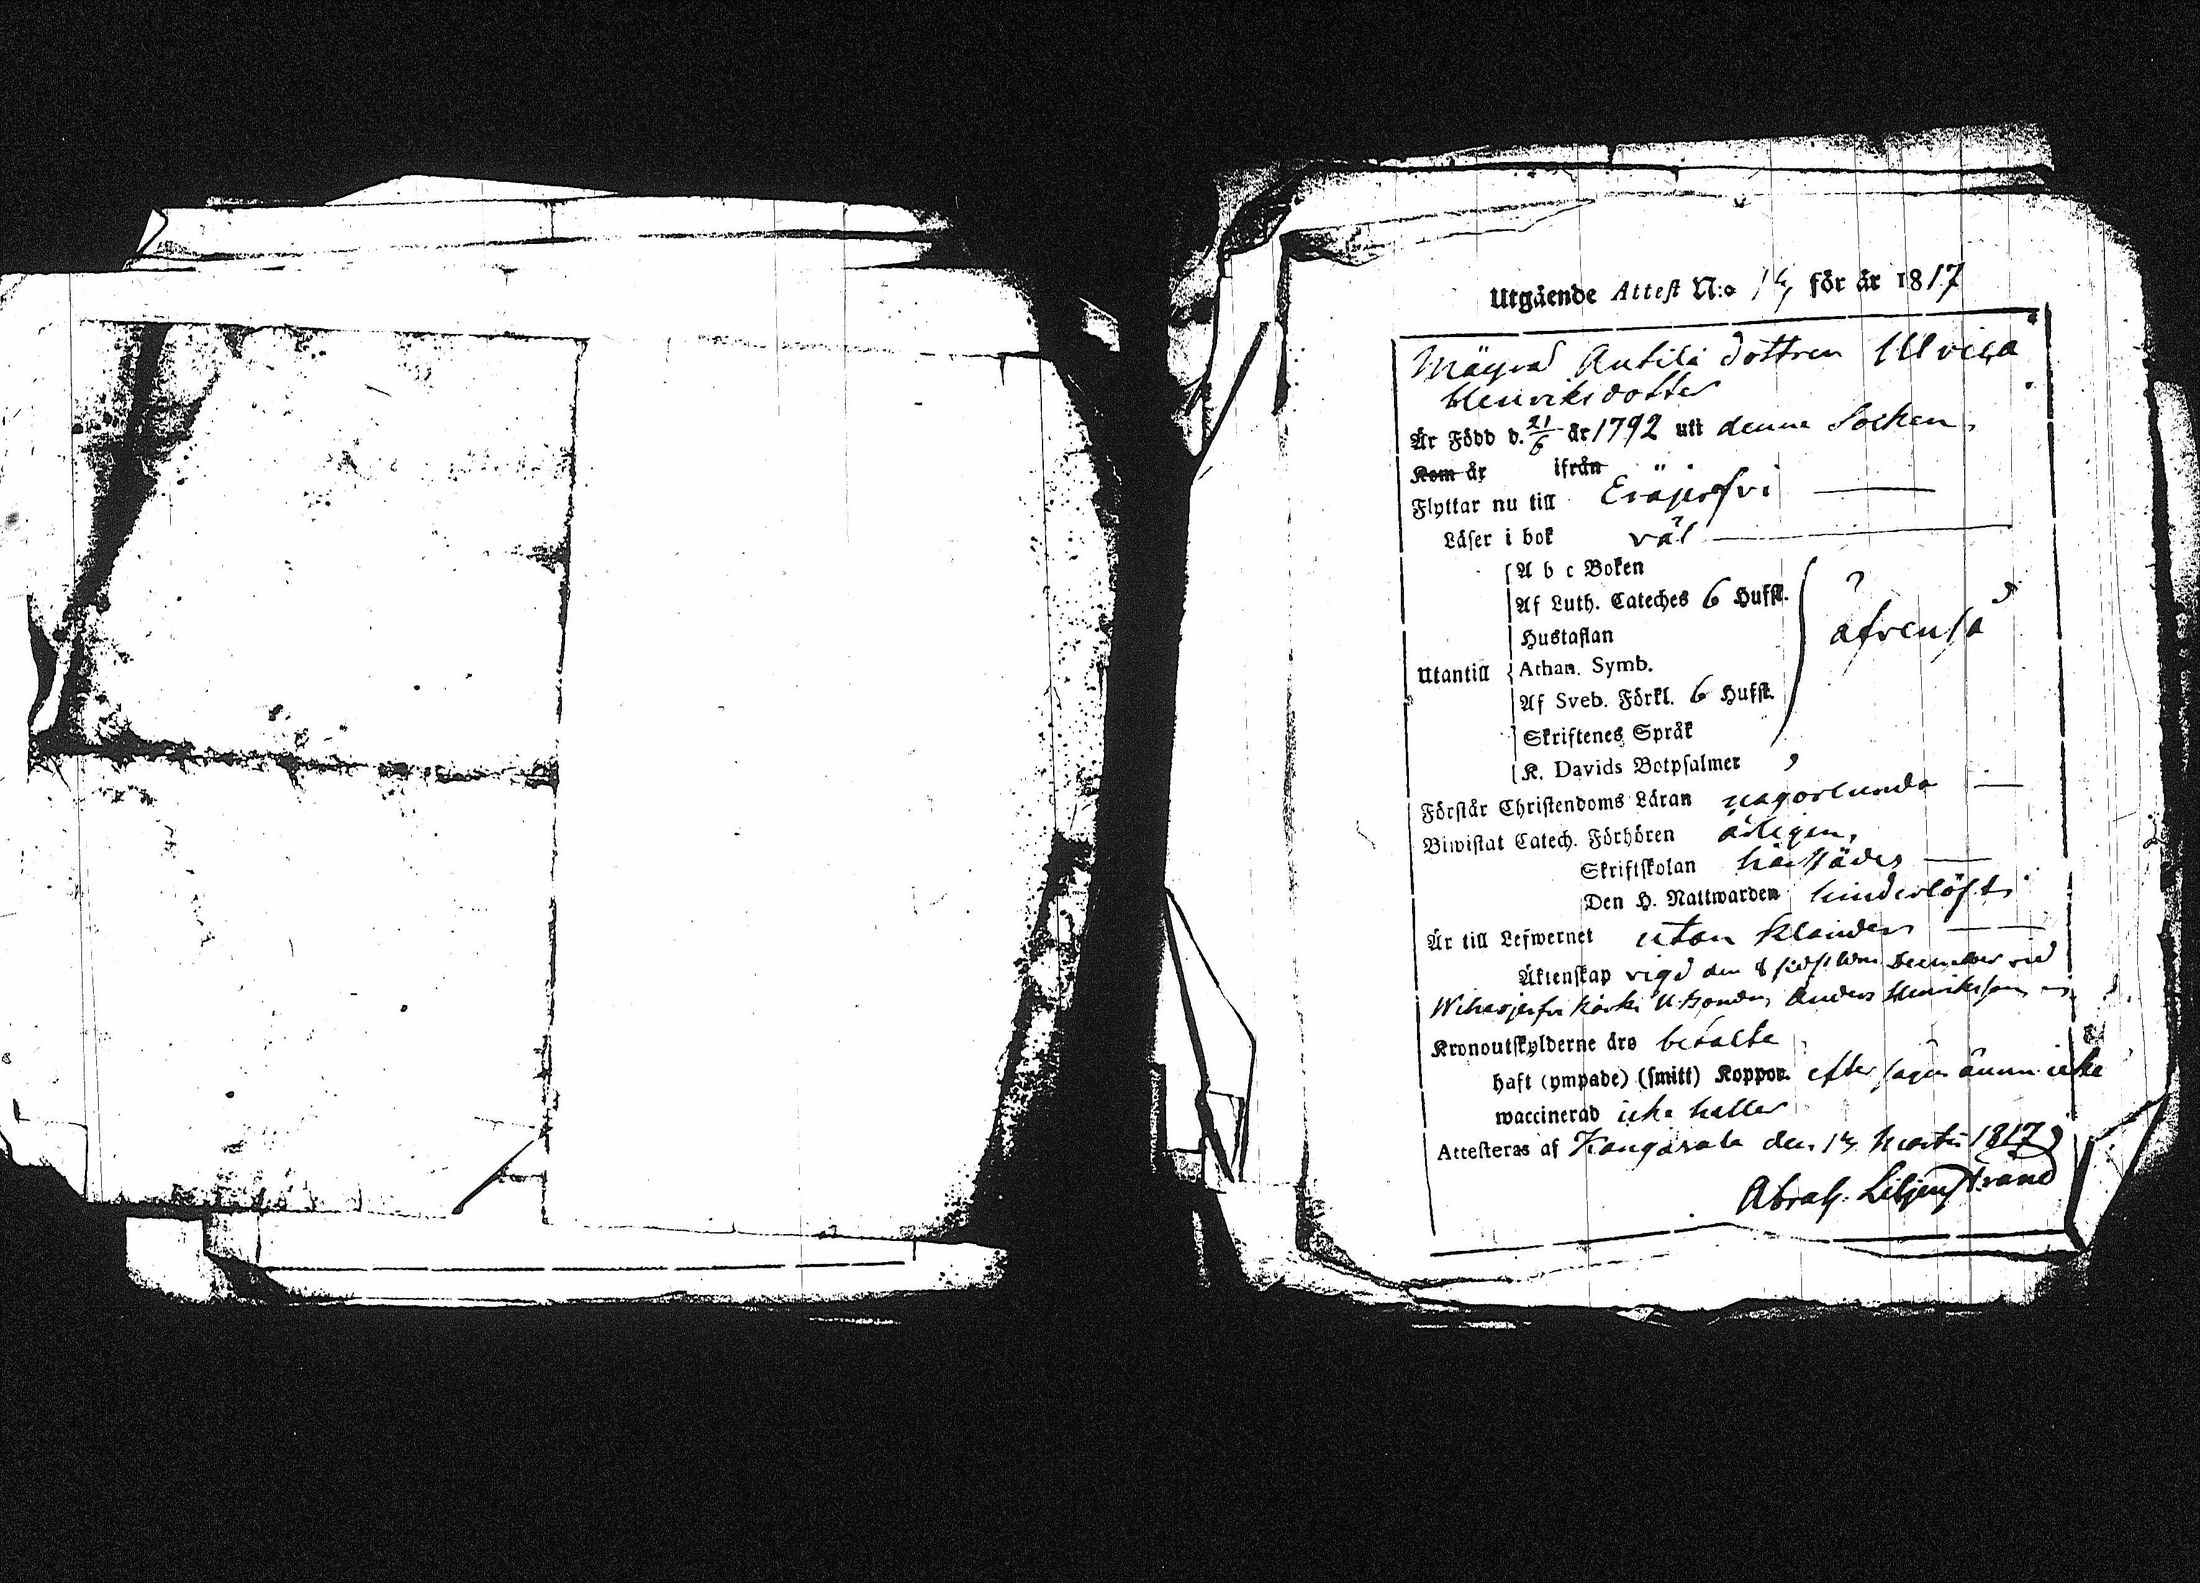 Utgående Attest N:o 14 för år 1817
Mäyrä Antila dottren Ulrica
Henriksdotter
Är Född d. 21/6 år 1792 utt denne Socken.
Kom år ifrån
Flyttar nu till Eräjerfvi
Läser i bok väl
A b c Boken
Af Luth. Cateches 6 Hufst.
Hustaflan
äfvenså
Utantill Athan. Symb.
Af Sveb. Förkl. 6 Hufst.
Skriftenes Språk
K. Davids Botpsalmer
Förstår Christendoms Läran någorlunda
Biwistat Catech. Förhören årligen,
Skriftskolan härstädes
Den H. Nattwarden hinderlöst
Är till Lefwernet utan klander
Äktenskap vigd den 8 sidstledne December vid
Anders Henriksson
Kronoutskylderne äro betalte
haft (ympade) (smitt) Koppor. efter sägen ännu icke
waccinerad icke heller
Attesteras af Kangasala den 14 Martii 1817
Abrah. Liljenstrand